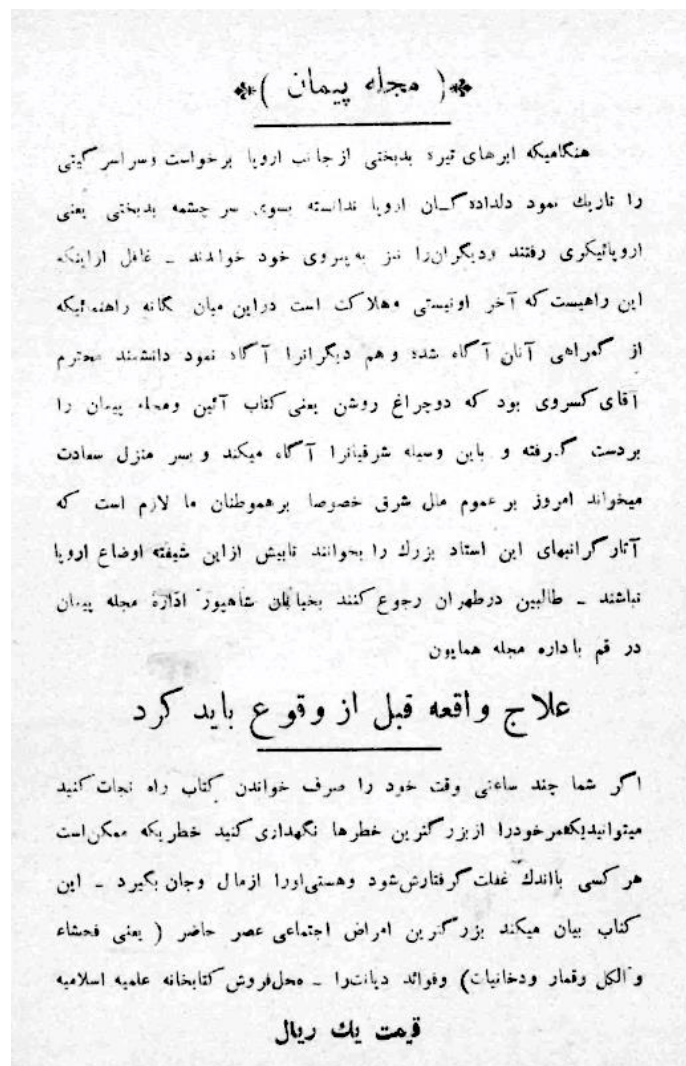 ( مجله پیمان )
هنگامیکه ابرهای تیره بدبختی ازجانب اروپا برخواست وسراسرگیتی
را تاریك نمود دلدادەگـان اروپا ندانسته بسوی سرچشمه بدبختی یعنی
اروپائیگری رفتند ودیگران‌را نیز به‌پیروی خود خواندند ـ غافل ازاینکه
این راهیست‌که آخر اونیستی وهلاکت است دراین میان یگانه راهنمائیکه
از گمراهی آنان آگاه شده وهم دیگرانرا آگاه نمود دانشمند محترم
آقای‌کسروی بود که دوچراغ روشن یعنی‌کتاب آئین ومجله پیمان را
بردست گرفته و باین وسیله شرقیانرا آگاه میکند و بسر منزل سعادت
میخواند امروز برعموم ملل شرق خصوصا برهموطنان ما لازم است که
آثارگرانبهای این استاد بزرك را بخوانند تابیش ازاین شیفته اوضاع اروپا
نباشند ـ طالبین درطهران رجوع‌کنند بخیابان شاهپور ادارهٔ مجله پیمان
در قم باداره مجله همایون
علاج واقعه قبل از وقوع باید کرد
اگر شما چند ساعتی وقت خود را صرف خواندن کتاب راه نجات‌کنید
میتوانیدیکعمرخودرا ازبزرگترین خطرها نگهداری‌کنید خطریکه ممکن‌است
هرکسی بااندك غفلت‌گرفتارش‌شود وهستی‌اورا ازمال وجان بگیرد ـ این
کتاب بیان میکند بزرگترین امراض اجتماعی عصر حاضر ( یعنی فحشاء
والکل وقمار ودخانیات) وفوائد دیانت‌را ـ محل‌فروش‌کتابخانه علمیه اسلامیه
قیمت یك ریال